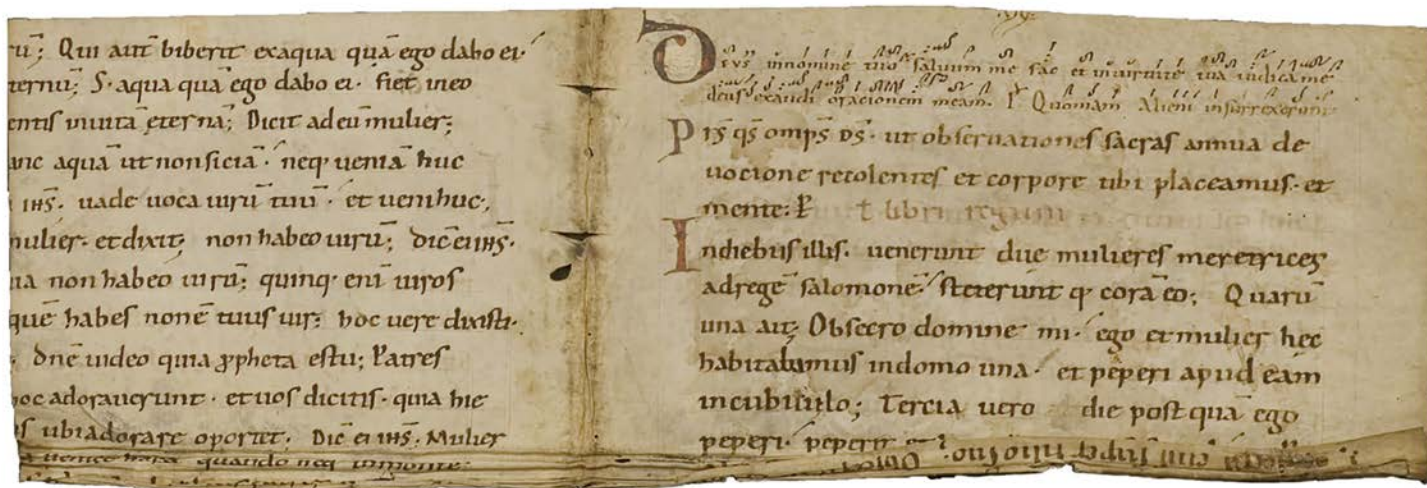 rū; Qui aut̄ biberit exaqua quā ego dabo ei·
ternū; S· aqua quā ego dabo ei· fiet ineo
entis inuitā ęternā; Dicit adeū mulier;
anc aquā ut nonsiciā· neq; ueniā huc
ih̄s· uade uoca uirū tuū· et ueni huc;
mulier· et dixit; non habeo uirū; dic̄ ei ih̄s·
ia non habeo uirū; quinq; eni uiros
quē habes nonē tuus uir; hoc uere dixisti·
dn̄e uideo quia ꝓpheta es tu; Patres
hoc adorauerunt· et uos dicitis· quia hie
s ubi adorare oportet· Dic̄ ei ih̄s· Mulier
quando neq; inmonte
Deus innomine tuo saluum me fac et inuirtute tua iudica me
deus exaudi oracionem meam· Quoniam alieni insurrexerunt
Prs̄ qs̄ omps̄ ds̄· ut obseruationes sacras annua de
uocione recolentes et corpore tibi placeamus· et
mente: P̄ libri regum
Indiebus illis· uenerunt due mulieres meretrices
adregē salomonē· steterunt q; corā eo; Quarū
una ait; Obsecro domine mi· ego et mulier hec
habitabamus indomo una· et peperi apud eam
incubiculo; Tercia uero die post quā ego
peperi· peperit